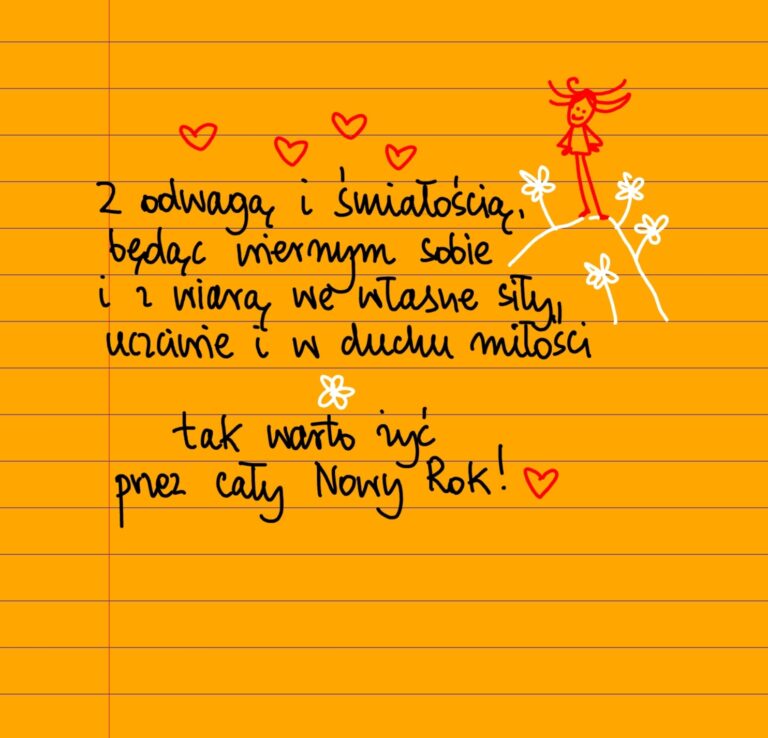 Z odwagą i śmiałością,
będąc wiernym sobie
i z wiarą we własne siły,
uczciwie i w duchu miłości
tak warto żyć
przez cały Nowy Rok!